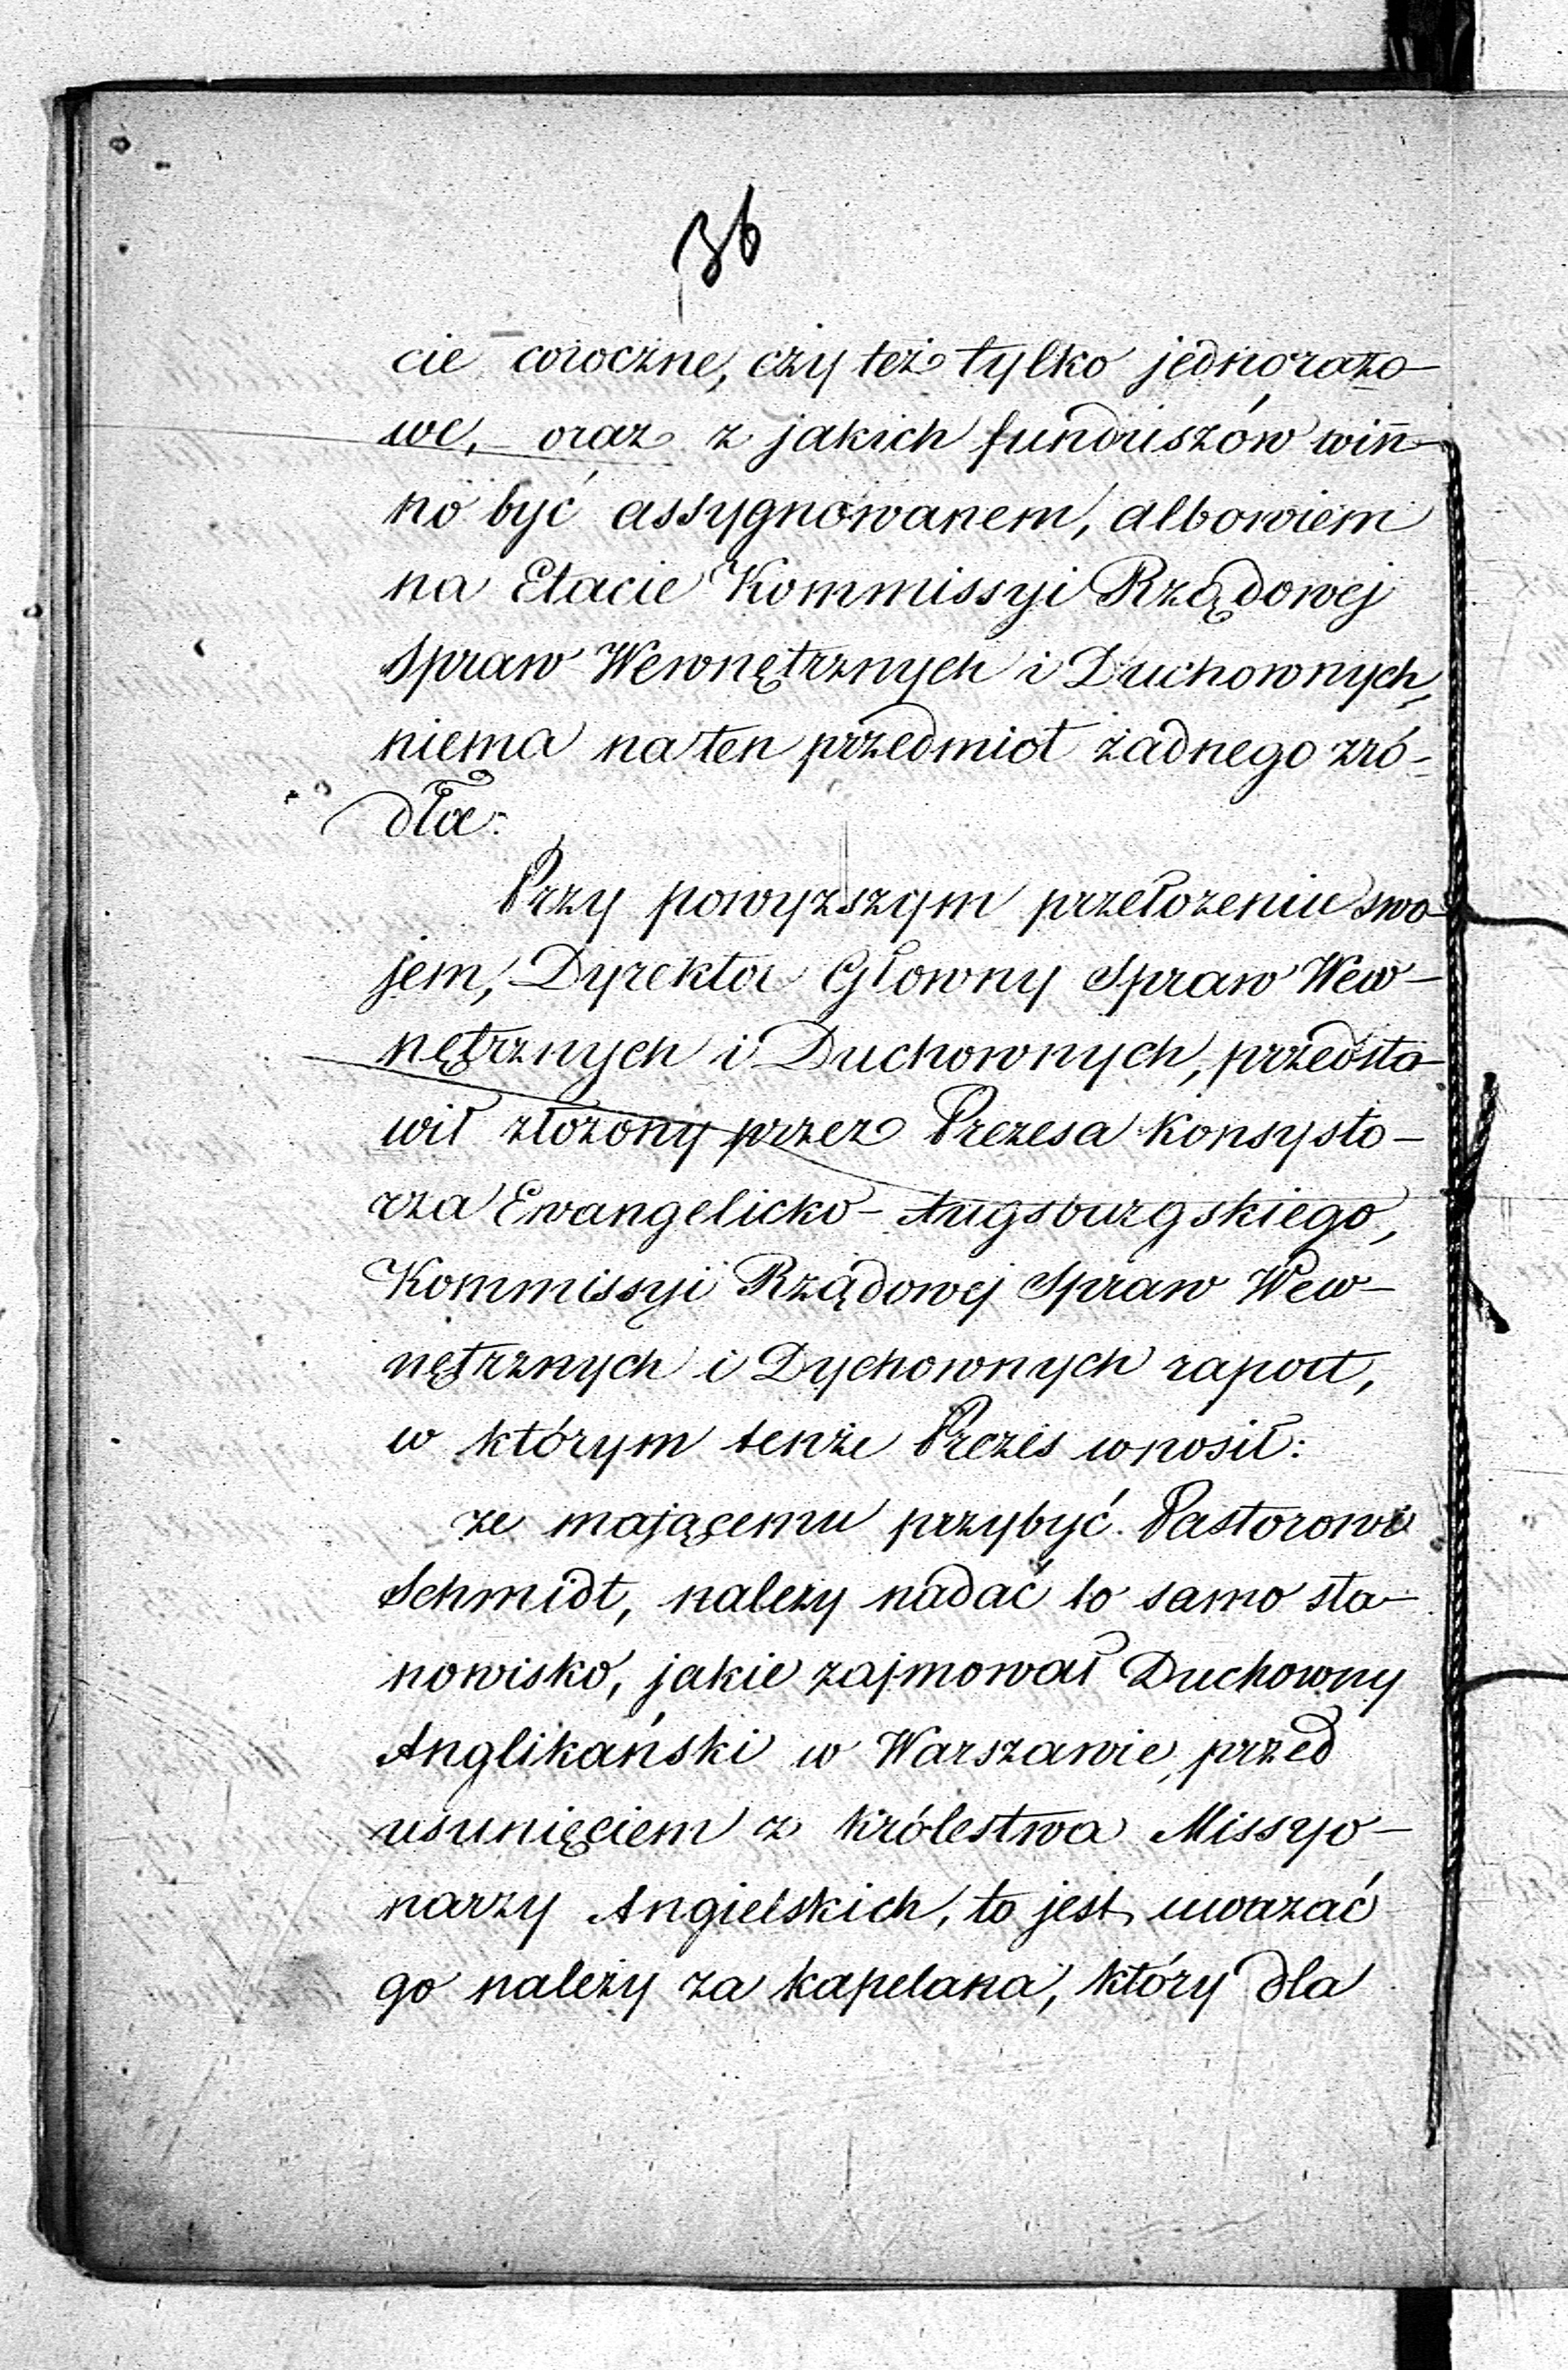 36
cie coroczne, czy też tylko jednorazo-
we, oraz z jakich funduszów win-
no być assygnowanem, albowiem
na Etacie Kommissyi Rządowej
Spraw Wewnętrznych i Duchownych,
niema na ten przedmiot żadnego zró-
dła.
Przy powyzszym przełozeniu swo-
jem, Dyrektor Głowny Spraw Wew-
nętrznych i Duchownych, przedsta-
wił złozony przez Prezesa Konsysto-
rza Ewangelicko-Augsburgskiego,
Kommissyi Rządowej Spraw Wew-
nętrznych i Dychownych raport,
w którym tenże Prezes wnosił:
ze mającemu przybyć Pastorowi
Schmidt, nalezy nadać to samo sta-
nowisko, jakie zajmował Duchowny
Anglikański w Warszawie, przed
usunięciem z Królestwa Missyo-
narzy Angielskich, to jest, uwazać
go należy za kapelana, który dla